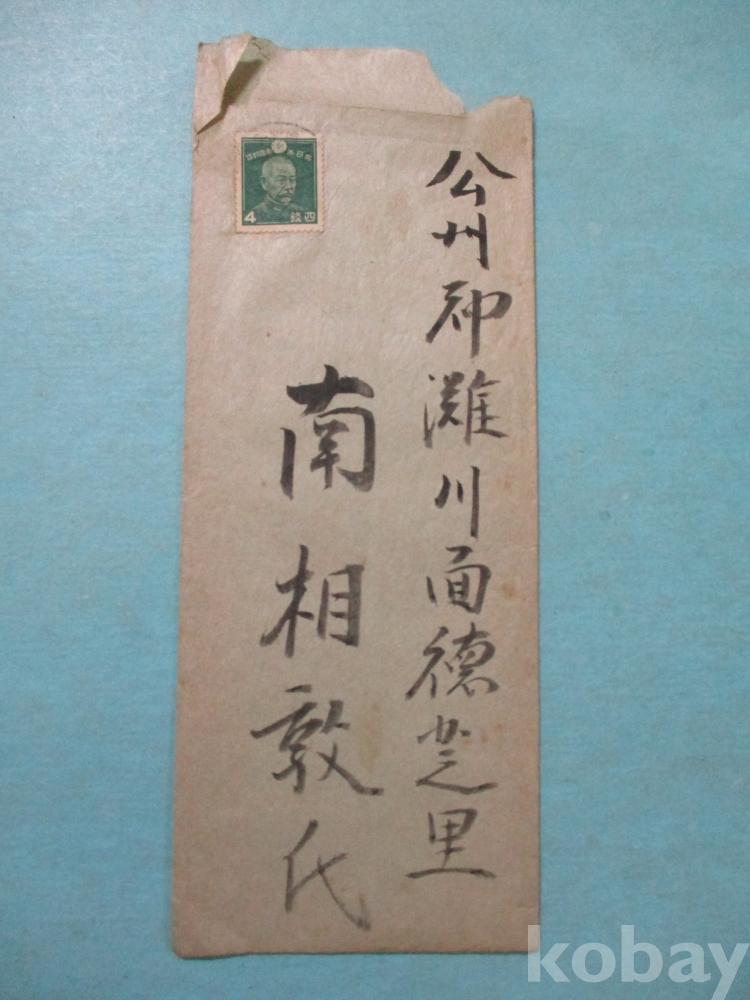 公州郡灘川面德芝里
南相敦氏
大日本帝國郵便
4 四錢
kobay